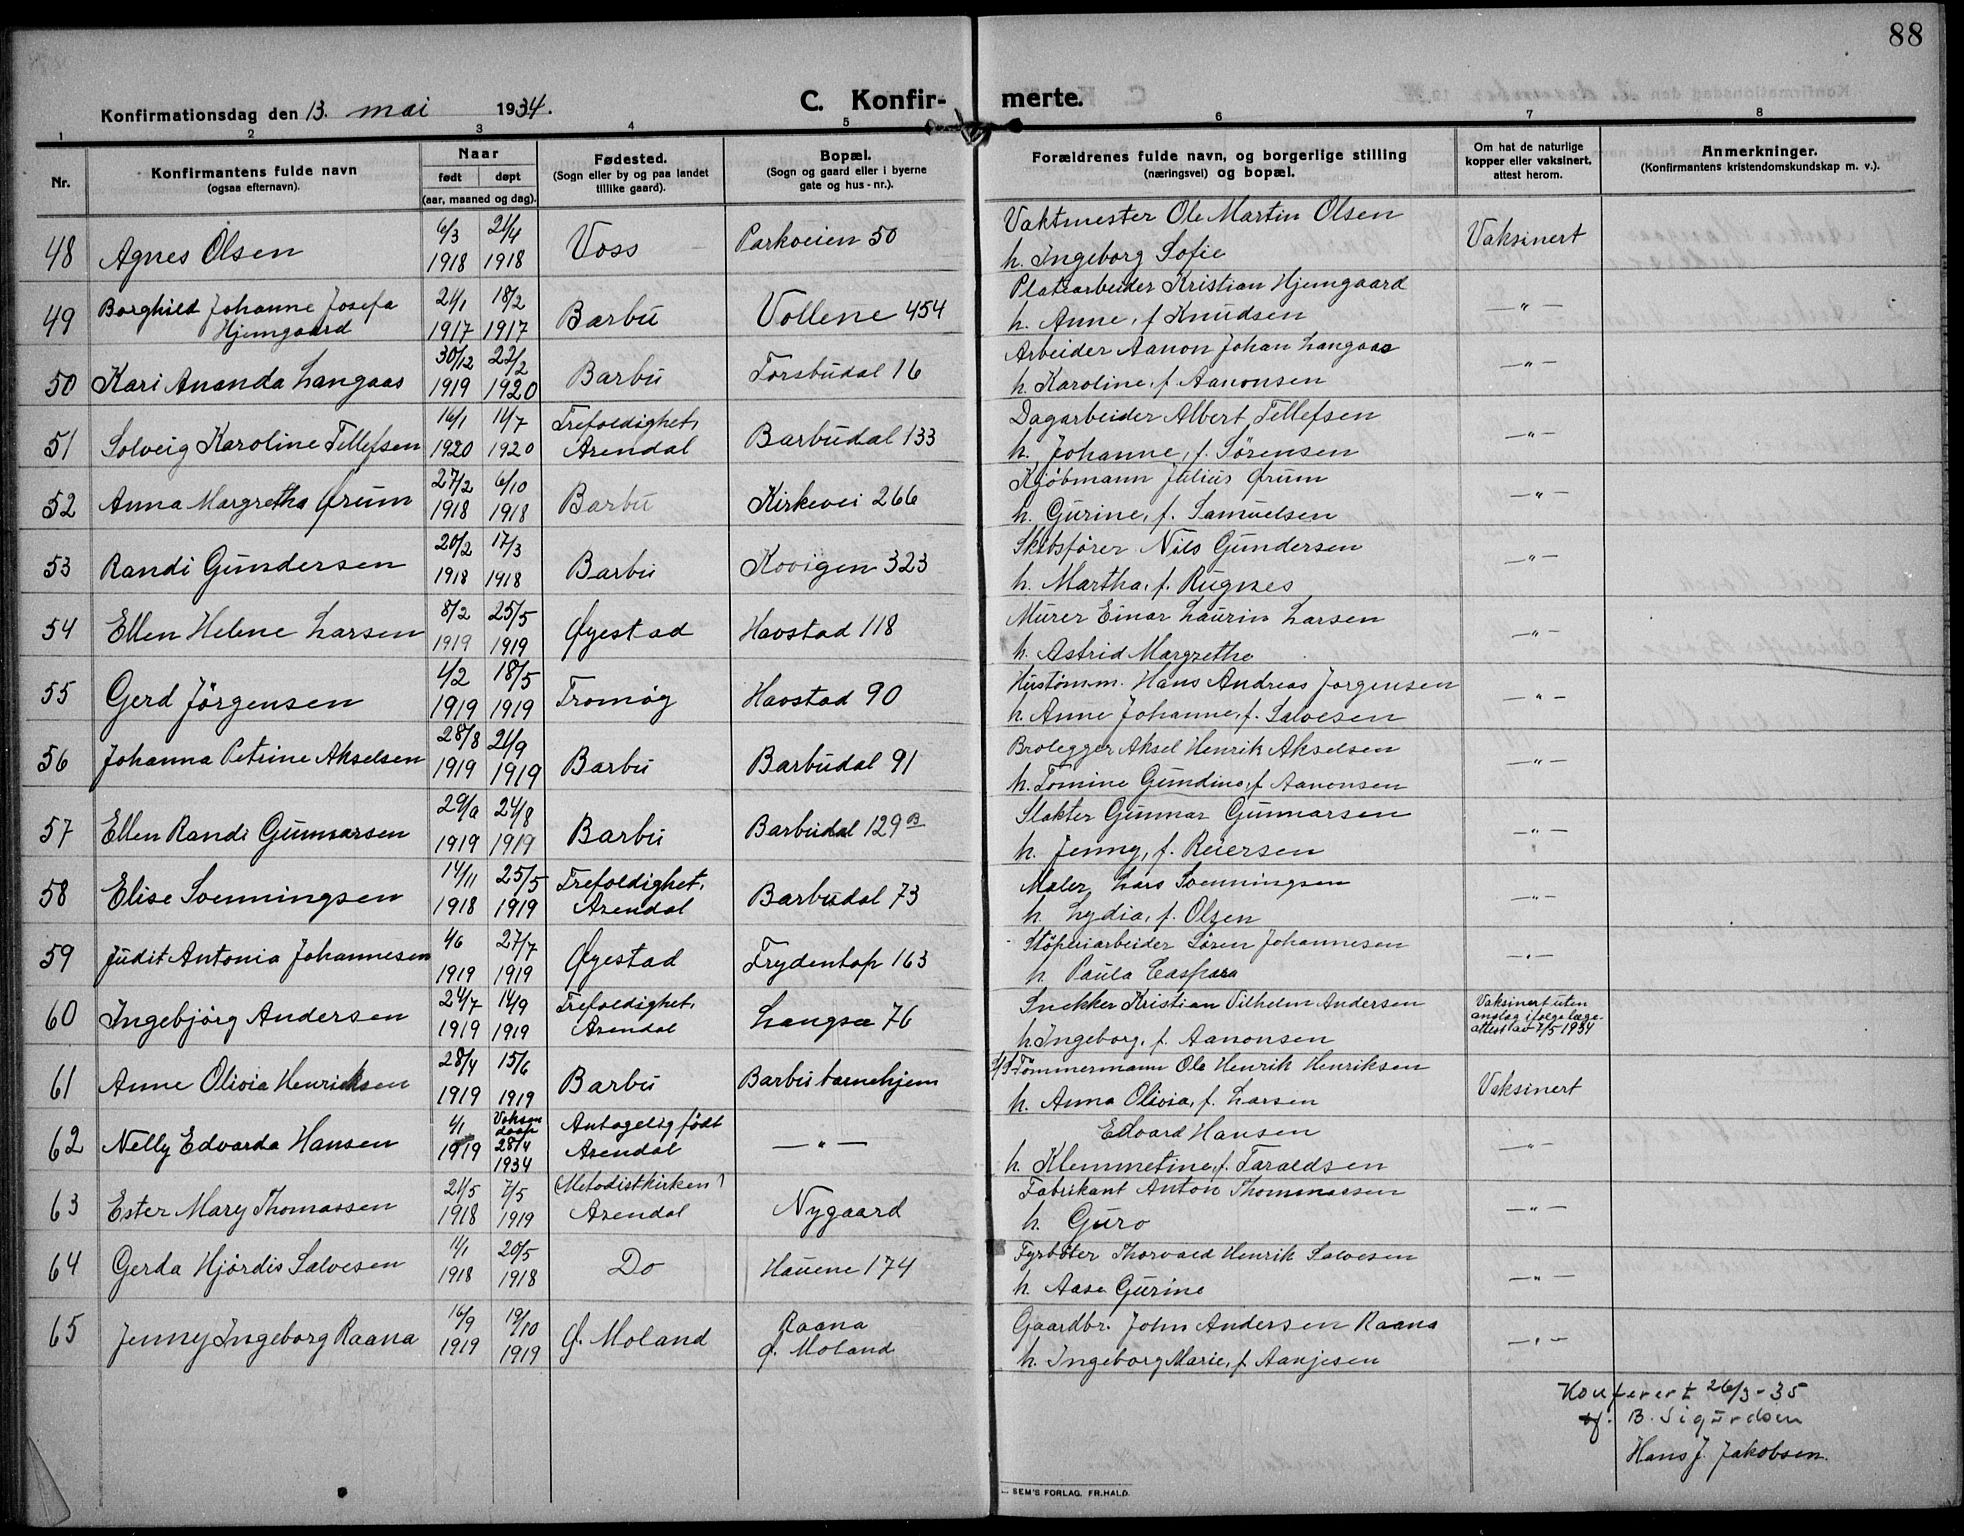 88
Konfirmationsdag den 13. mai 1934.
C. Konfir- merte.
1 2 3 4 5 6 7 8
Nr.
Konfirmantens fulde navn
(ogsaa efternavn).
Naar
født døpt
(aar, maaned og dag).
Fødested.
(Sogn eller by og paa landet
tillike gaard).
Bopæl.
(Sogn og gaard eller i byerne
gate og hus-nr.).
Forældrenes fulde navn, og borgerlige stilling
(næringsvei) og bopæl.
Om hat de naturlige
kopper eller vaksinert,
attest herom.
Anmerkninger.
(Konfirmantens kristendomskundskap m. v.).
48 Agnes Olsen 6/3 1918 21/4 1918 Voss Parkveien 50 Vaktmester Ole Martin Olsen
h. Ingeborg Sofie Vaksinert
49 Borghild Johanne Josefa
Hjemgaard 21/1 1917 18/2 1917 Barbu Vollene 454 Platearbeider Kristian Hjemgaard
h. Anne, f. Knudsen —"—
50 Kari Ananda Langaas 30/12 1919 22/2 1920 Barbu Torsbudal 16 Arbeider Aanon Johan Langaas
h. Karoline, f. Aanonsen —"—
51 Solveig Karoline Tellefsen 16/1 1920 11/7 1920 Trefoldighet,
Arendal Barbudal 133 Dagarbeider Albert Tellefsen
h. Johanne, f. Sørensen —"—
52 Anna Margretha Ørum 27/2 1918 6/10 1918 Barbu Kirkevei 266 Kjøbmann Julius Ørum
h. Gurine, f. Samuelsen —"—
53 Randi Gundersen 20/2 1918 17/3 1918 Barbu Kovigen 323 Skibsfører Nils Gundersen
h. Martha, f. Rugnes —"—
54 Ellen Helene Larsen 8/2 1919 25/5 1919 Øyestad Havstad 118 Murer Einar Laurin Larsen
h. Astrid Margrethe —"—
55 Gerd Jörgensen 4/2 1919 18/5 1919 Tromøy Havstad 90 Hustömm. Hans Andreas Jorgensen
h. Anne Johanne, f. Salvesen —"—
56 Johanna Petrine Akselsen 28/8 1919 21/9 1919 Barbu Barbudal 91 Brolegger Aksel Henrik Akselsen
h. Tomine Gundine, f. Aanonsen —"—
57 Ellen Randi Gunnarsen 1919 24/8 1919 Barbu Barbudal 129 B Slakter Gunnar Gunnarsen
h. Jenny, f. Reiersen —"—
58 Elise Svenningsen 14/11 1918 25/5 1919 Trefoldighet,
Arendal Barbudal 73 Maler Lars Svenningsen
h. Lydia, f. Olsen —"—
59 Judit Antonia Johannesen 4/6 1919 27/7 1919 Øyestad Frydentop 163 Støperiarbeider Søren Johannesen
h. Paula Caspara —"—
60 Ingebjörg Andersen 24/7 1919 14/9 1919 Trefoldighet,
Arendal Langsæ 76 Snekker Kristian Vilhelm Andersen
h. Ingeborg, f. Aanonsen Vaksinert uten
anslag ifølge læge-
attest av 7/5 1934
61 Anne Olivia Henriksen 28/4 1919 15/6 1919 Barbu Barbu barnehjem d/s Tömmermann Ole Henrik Henriksen
h. Anna Olivia, f. Larsen Vaksinert
62 Nelly Edvarda Hansen 4/1 1919 Voksen
daap
28/4
1934 Antagelig født
Arendal —"— Edvard Hansen
h. Klemmetine, f. Taraldsen —"—
63 Ester Mary Thomassen 21/5 1918 7/5 1919 (Metodistkirken)
Arendal Nygaard Fabrikant Anton Thommassen
h. Guro —"—
64 Gerda Hjördis Salvesen 11/1 1918 20/5 1918 Do Hauene 174 Fyrbøter Thorvald Henrik Salvesen
h. Aase Gurine —"—
65 Jenny Ingeborg Raana 16/9 1919 19/10 1919 Ø. Moland Raana
Ø. Moland Gaardbr. John Andersen Raana
h. Ingeborg Marie, f. Aanjesen —"—
Konferert 26/3-35
B. Sigurdsen
Hans J. Jakobsen.
SEM'S FORLAG, FR.HALD.